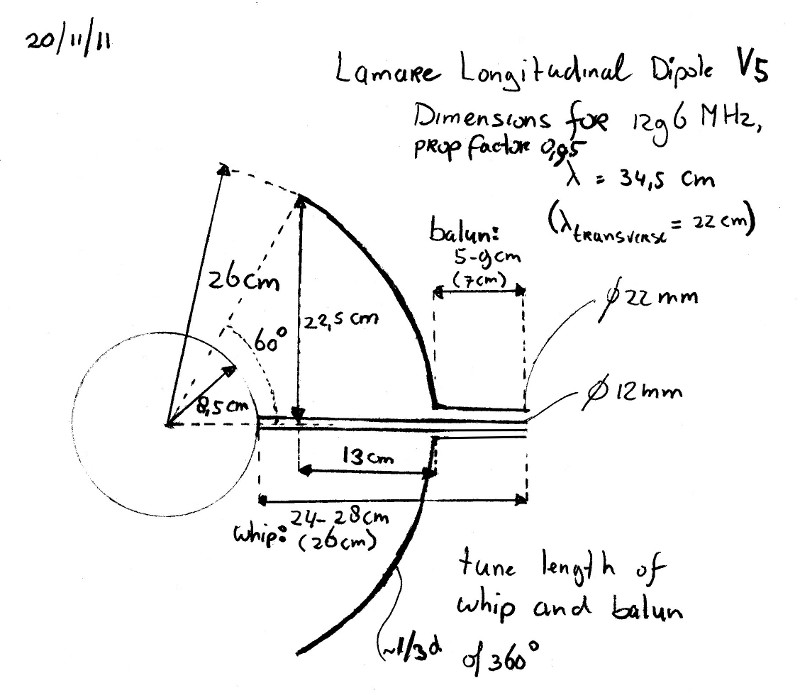 20/11/11
Lamare Longitudinal Dipole V5
Dimensions for 1296 MHz,
prop factor 0,95
λ = 34,5 cm
(λtransverse = 22 cm)
balun:
5-9cm
(7cm)
Ø22 mm
26cm
22,5 cm
60°
Ø12mm
8,5 cm
13cm
24-28cm
whip: (26cm)
tune length of
whip and balun
~1/3d of 360°